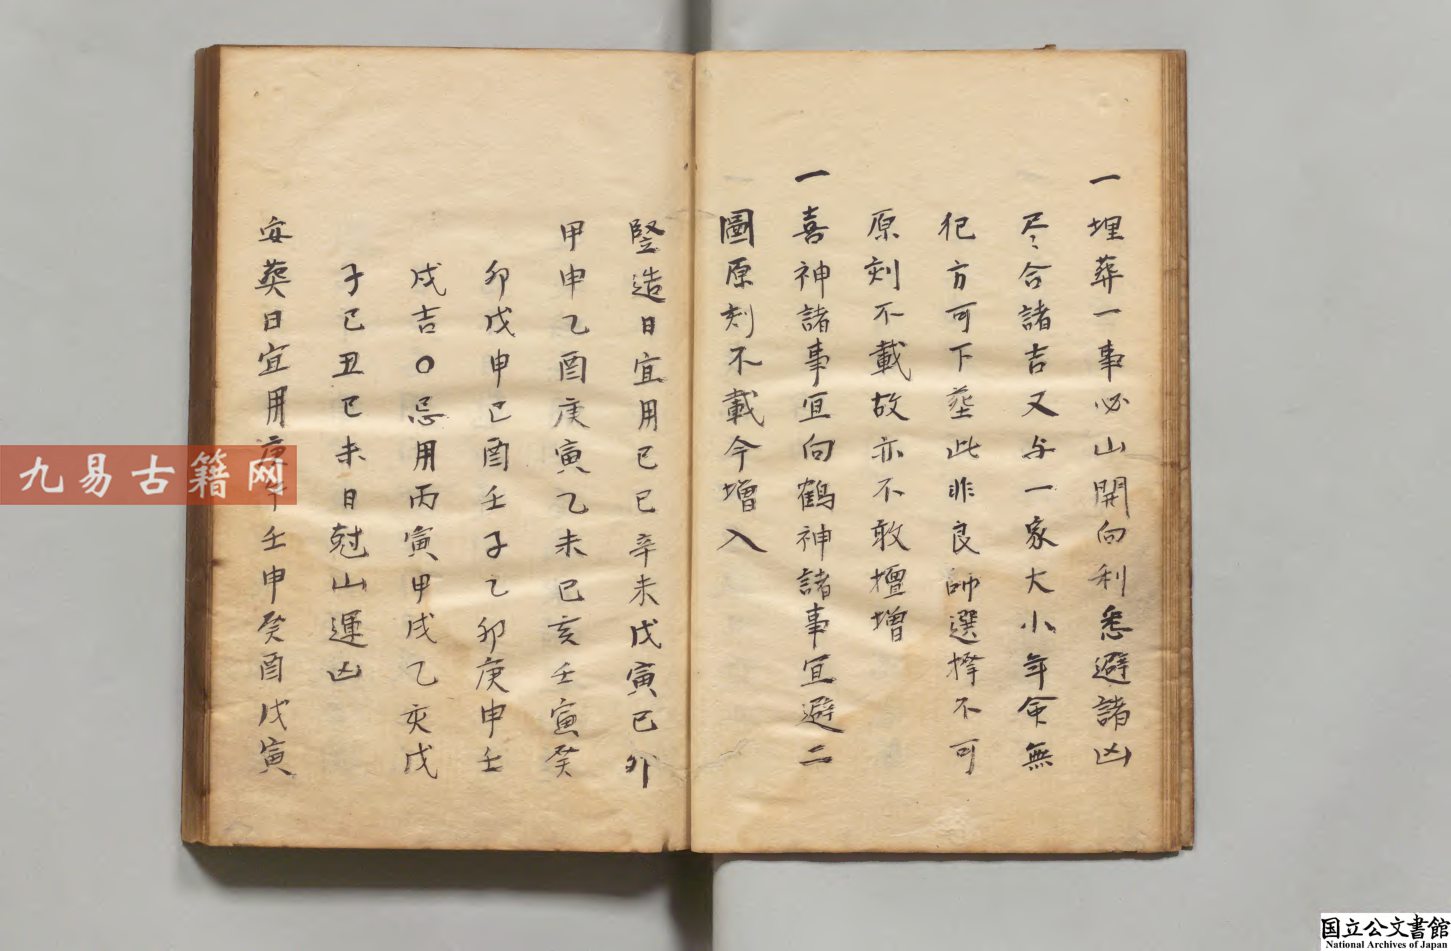 一埋葬一事必山開向利悉避諸凶
尽合諸吉又与一家大小年命無
犯方可下塟此非良師選擇不可
原刻不載故亦不敢擅增
一喜神諸事宜向鶴神諸事宜避二
圖原刻不載今增入
竪造日宜用己巳辛未戊寅己卯
甲申乙酉庚寅乙未己亥壬寅癸
卯戊申己酉壬子乙卯庚申壬
戌吉〇忌用丙寅甲戌乙亥戊
子己丑己未日尅山運凶
安葬日宜用庚午壬申癸酉戊寅
九易古籍网
国立公文書館
National Archives of Japan